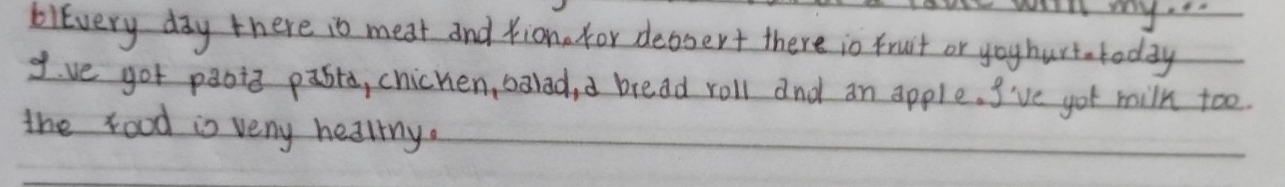 with my...
b) Every day there is meat and fion. for dessert there is fruit or yoghurt. today
I've got pasta pasta, chicken, salad, a bread roll and an apple. I've got milk too.
the food is veny healthy.